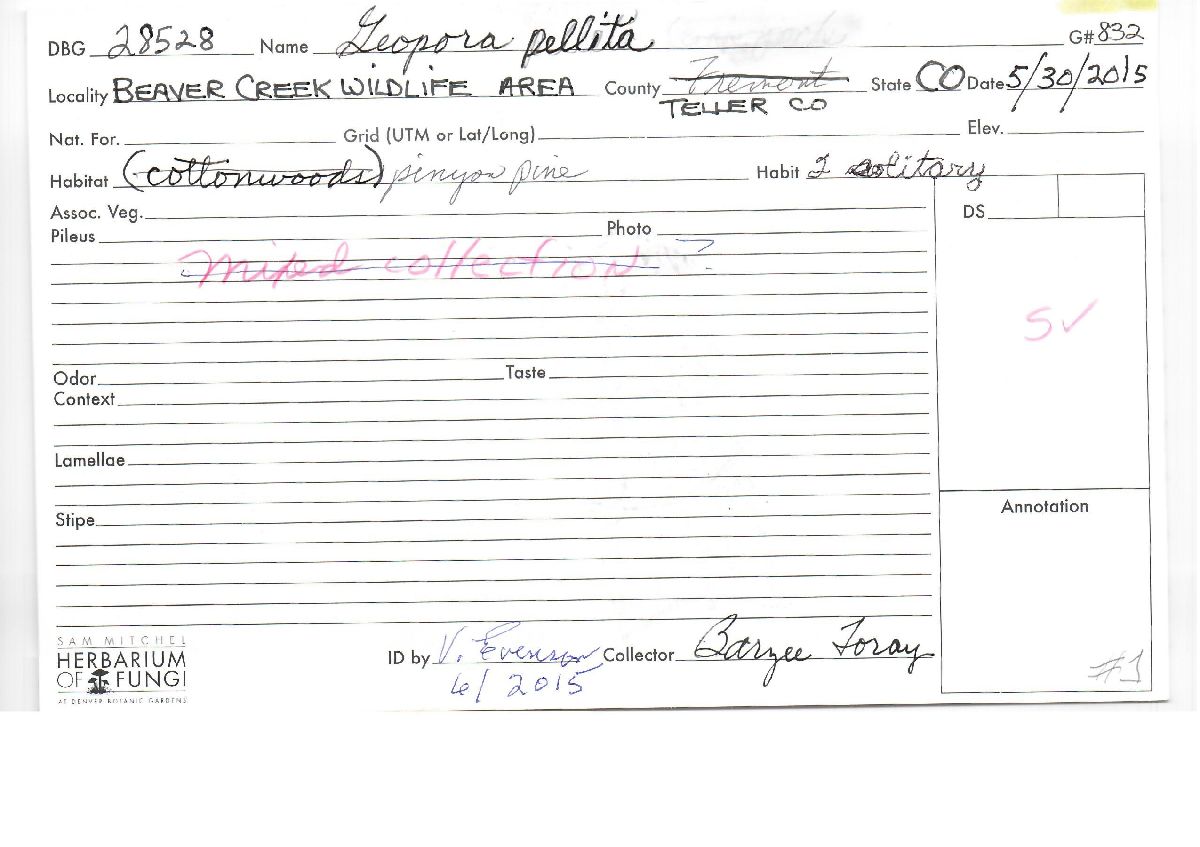 DBG 28528 Name Geopora pellita G# 832
Locality BEAVER CREEK WILDLIFE AREA County Fremont State CO Date 5/30/2015
TELLER CO
Nat. For. Grid (UTM or Lat/Long) Elev.
Habitat (cottonwoods) pinyon pine Habit solitary
Assoc. Veg. DS
Pileus Photo
Mixed collection ?
S✓
Odor Taste
Context
Lamellae
Stipe Annotation
SAM MITCHEL
HERBARIUM
OF FUNGI
AT DENVER BOTANIC GARDENS
ID by V. Evenson Collector Barzee Toray
6/2015
#1